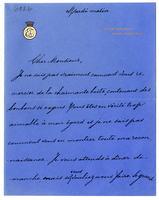 Mardi matin
Cher Monsieur,
Je ne sais pas vraiment comment vous re-
mercier de la charmante boîte contenant des
bonbons si exquis. Vous êtes en vérité trop
aimable à mon égard et je ne sais pas
comment vous en montrer toute ma recon-
naissance. Je vous attends à dîner di-
manche